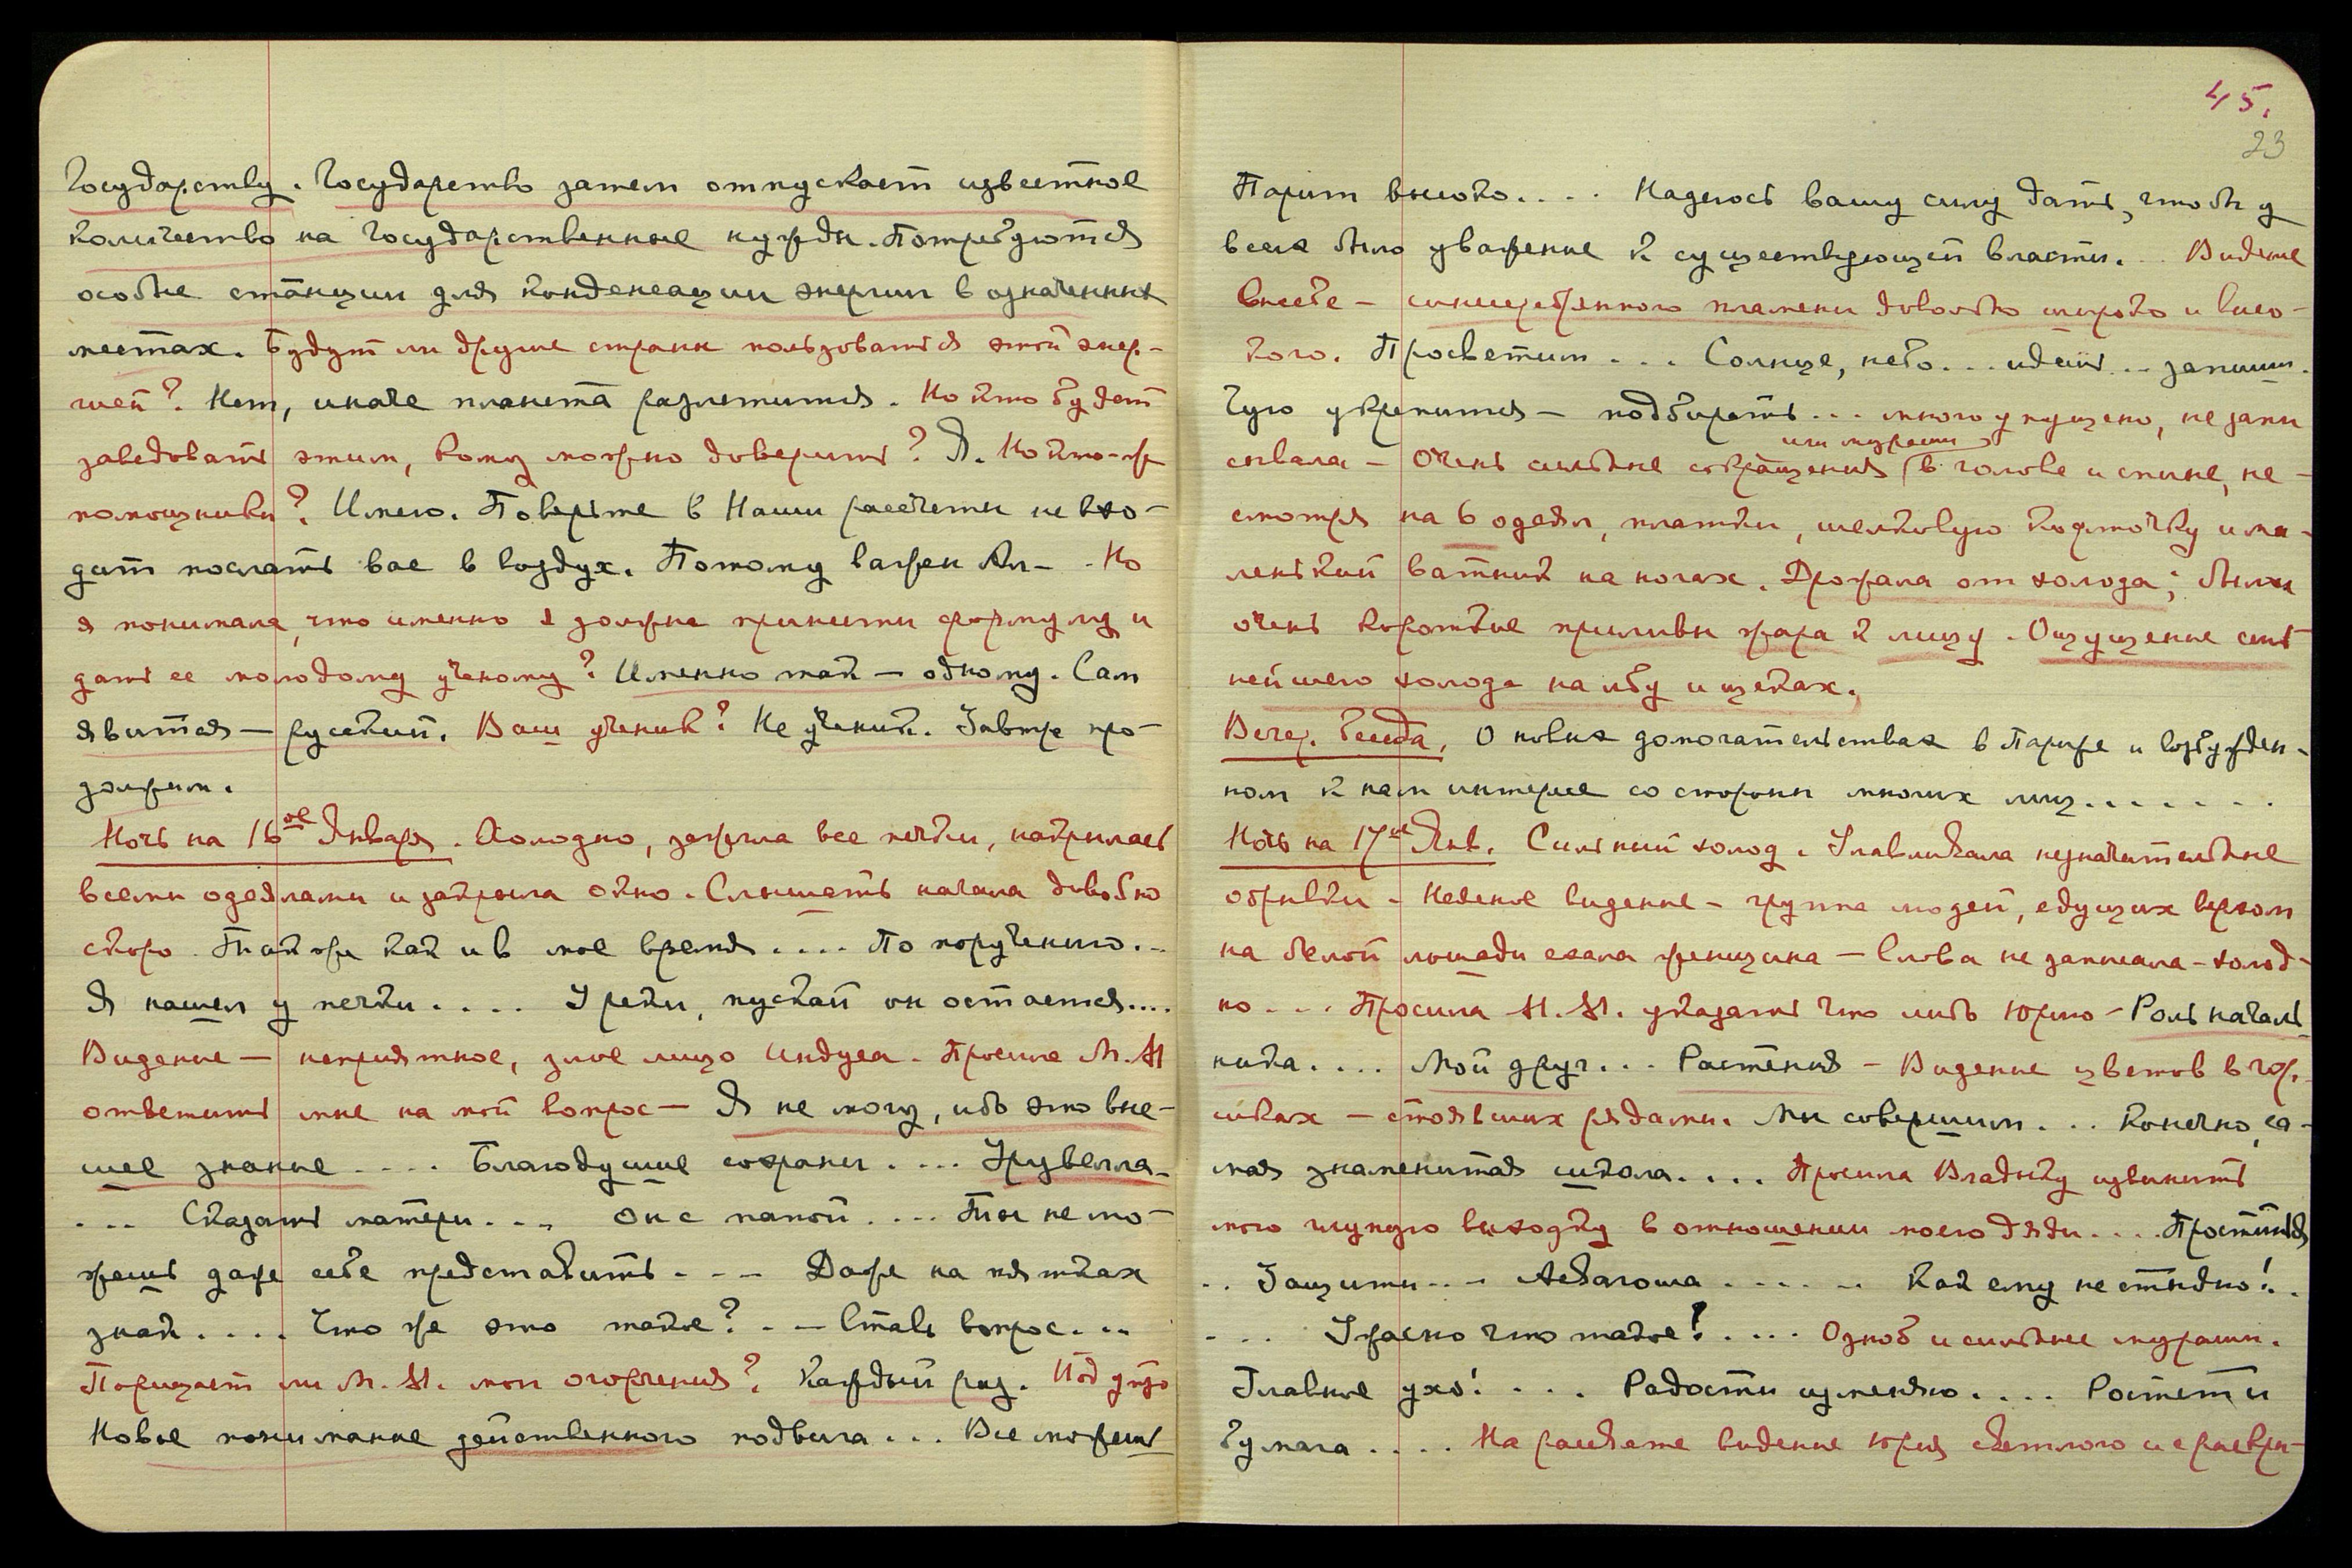 Государству. Государство затем отпускает известное
количество на Государственные нужды. Потребуются
особые станции для конденсации энергии в означенных
местах. Будут ли другие страны пользоваться этой энер-
гией? Нет, иначе планета разлетится. Но кто будет
заведовать этим, кому можно доверить? Я. Но кто-же
помощники? Имею. Поверьте в Наши рассчеты не вхо-
дит послать вас в воздух. Потому важен Ал- . Но
я понимала, что именно я должна принити формулу и
дать ее молодому ученому? Именно так — одному. Сам
явится — русский. Ваш ученик? Не ученик. Завтра про-
должим.
Ночь на 16ое Января. Холодно, зажгла все печки, накрылась
всеми одеялами и закрыла окно. Слышать начала довольно
скоро. Так же как и в мое время .... По поручению..
Я нашел у печки .... У реки, пускай он остается....
Видение — неприятное, злое лицо индуса. Просила М.М
ответить мне на мой вопрос — Я не могу, ибо это выс-
шее знание .... Благодушие сохрани .... Урувелла-
... Сказать матери ... Он с папой .... Ты не мо-
жешь даже себе представить ... Даже на пятках
знак .... Что же это такое? .. — Ставь вопрос...
Порицает ли М.М. мои огорчения? Каждый раз. Под утро
Новое понимание действенного подвига ... Все можешь
45.
23
Парит высоко .... Надеюсь вашу силу дать, чтобы у
всех было уважение к существующей власти... Видение
синесеребряного пламени довольно широко и высо-
кого. Просветим ... Солнце, небо... идёшь... запиши.
Чую укрепится — подбирать ... много упущено, не запи
сывала — Очень сильные сокращения (или мурашки) в голове и спине, не-
смотря на 6 одеял, платки, шелковую кофточку и ма-
ленький ватник на ногах. Дрожала от холода; были
очень короткие приливы жара к лицу. Ощущение силь
нейшего холода на лбу и щеках.
Вечер. беседа. О новых домогательствах в Париже и возбужден-
ном к нам интересе со стороны многих лиц.......
Ночь на 17ое Янв. Сильный холод. Улавливала незначительные
обрывки. Неясное видение — группа людей, едущих верхом
на белой лошади ехала женщина — Слова не записала — холод-
но ... Просила М.М. указать что либо Юрию — Роль началь
ника .... Мой друг ... Растения — Видение цветов в гор.
шках — стоявших рядами. Мы совершим ... Конечно, са-
мая знаменитая школа .... Просила Владыку извинить
мою глупую выходку в отношении моего дяди .... Проститься
.. Защити ... ...... Как ему не стыдно!..
... Ужасно что такое! .... Озноб и сильные мурашки.
Главное ухо! ... Радости изменяю .... Ростет и
бумага .... На рассвете видение Юрия светлого и